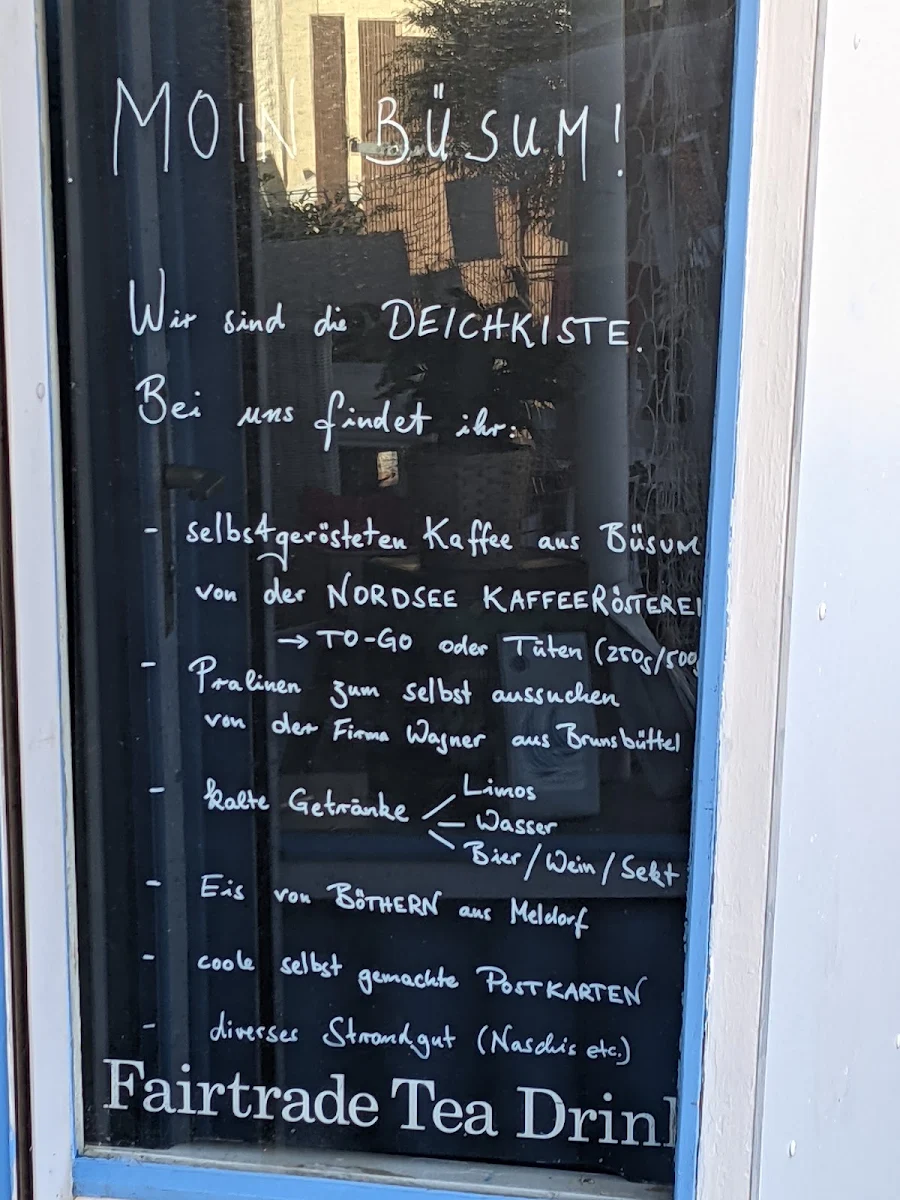 MOIN BÜSUM!
Wir sind die DEICHKISTE.
Bei uns findet ihr:
- selbstgerösteten Kaffee aus BÜSUM
von der NORDSEE KAFFEERÖSTEREI
→ TO-GO oder Tüten (250g/500g
- Pralinen zum selbst aussuchen
von der Firma Wagner aus Brunsbüttel
- kalte Getränke
Limos
Wasser
Bier/Wein/Sekt
- Eis von BÖTHERN aus Meldorf
- coole selbst gemachte POSTKARTEN
- diverses Strandgut (Naschis etc.)
Fairtrade Tea Drin